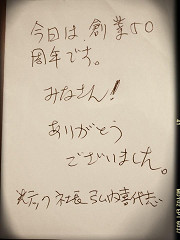 今日は、創業50
周年です。
みなさん!
ありがとう
ございました。
社長 内喜代志